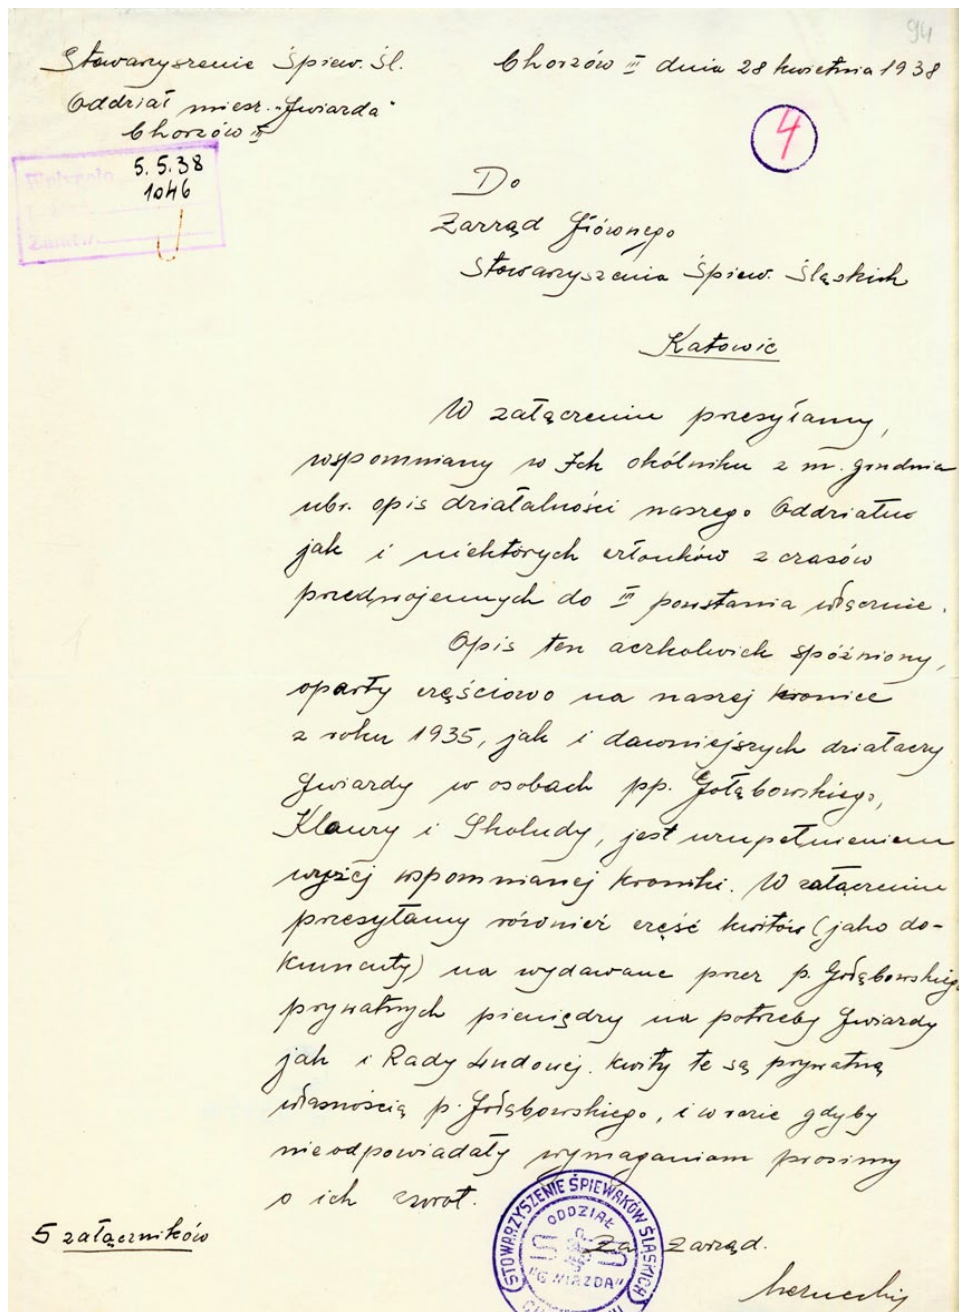 94
Stowarzyszenie Śpiew. Śl.
Chorzów III dnia 28 kwietnia 1938
Oddział miesz. "Gwiazda"
Chorzów III
4
5.5.38
1046
Do
Zarząd Głównego
Stowarzyszenia Śpiew. Śląskich
Katowic
W załączeniu przesyłamy,
wspomniany w Ich okólniku z m. grudnia
ubr. opis działalności naszego Oddziału
jak i niektórych członków z czasów
przedwojennych do III powstania włącznie.
Opis ten aczkolwiek spóźniony,
oparty częściowo na naszej kronice
z roku 1935, jak i dawniejszych działaczy
Gwiazdy w osobach pp. Gołąbowskiego,
Klaury i Skoludy, jest uzupełnieniem
wyżej wspomnianej kroniki. W załączeniu
przesyłamy również część kwitów (jako do-
kumenty) na wydawane przez p. Gołąbowskiego
prywatnych pieniędzy na potrzeby Gwiazdy
jak i Rady Ludowej. Kwity te są prywatną
własnością p. Gołąbowskiego, i w razie gdyby
nieodpowiadały wymaganiom prosimy
o ich zwrot.
5 załączników
STOWARZYSZENIE ŚPIEWAKÓW ŚLĄSKICH
ODDZIAŁ
"GWIAZDA"
Za Zarząd.